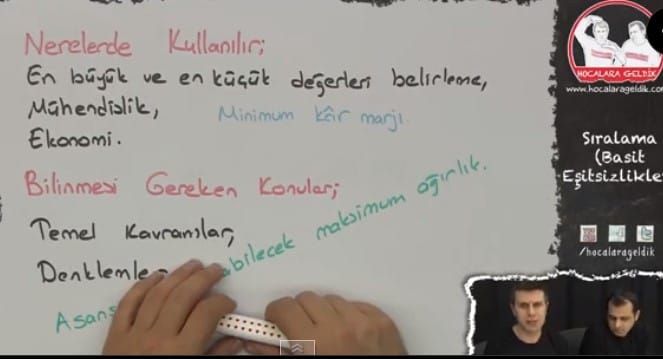 Nerelerde Kullanılır;
En büyük ve en küçük değerleri belirleme,
Mühendislik,
Minimum kâr marjı.
Ekonomi.
Bilinmesi Gereken Konular;
Temel Kavramlar,
maksimum ağırlık.
HOCALARA GELDİK
www.hocalarageldik.com
Sıralama
(Basit
Eşitsizlikle
/hocalarageldik